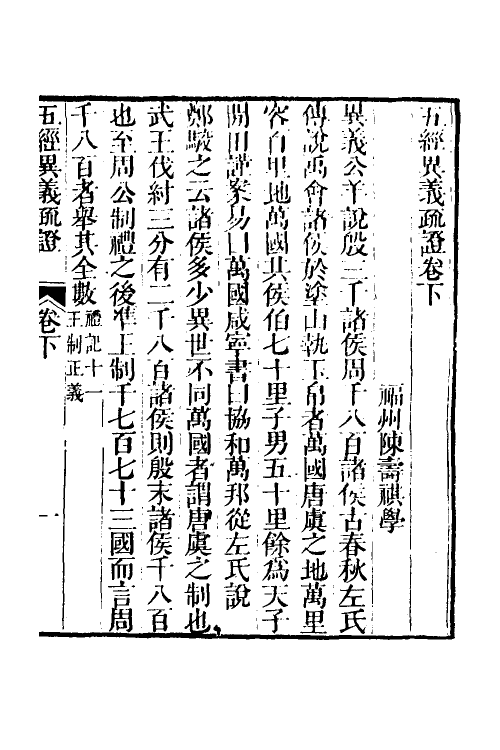 五經異義疏證卷下
福州陳壽祺學
異義公羊說殷三千諸侯周千八百諸侯古春秋左氏
傳說禹會諸侯於塗山執玉帛者萬國唐虞之地萬里
容百里地萬國其侯伯七十里子男五十里餘為天子
閒田謹案易曰萬國咸寧書曰協和萬邦從左氏說
鄭駮之云諸侯多少異世不同萬國者謂唐虞之制也
武王伐紂三分有二千八百諸侯則殷末諸侯千八百
也至周公制禮之後準王制千七百七十三國而言周
千八百者舉其全數禮記十一王制正義
五經異義疏證 卷下 一